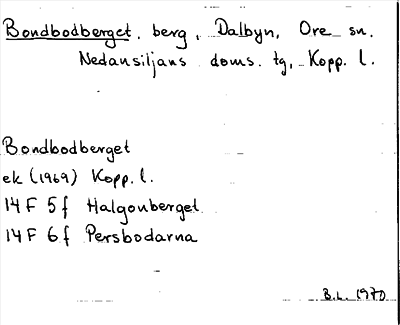 Bondbodberget. berg, Dalbyn, Ore sn.
Nedansiljans doms. tg, Kopp. l.
Bondbodberget
ek (1969) Kopp. l.
14 F 5 f Halgonberget
14 F 6 f Persbodarna
B.L. 1970